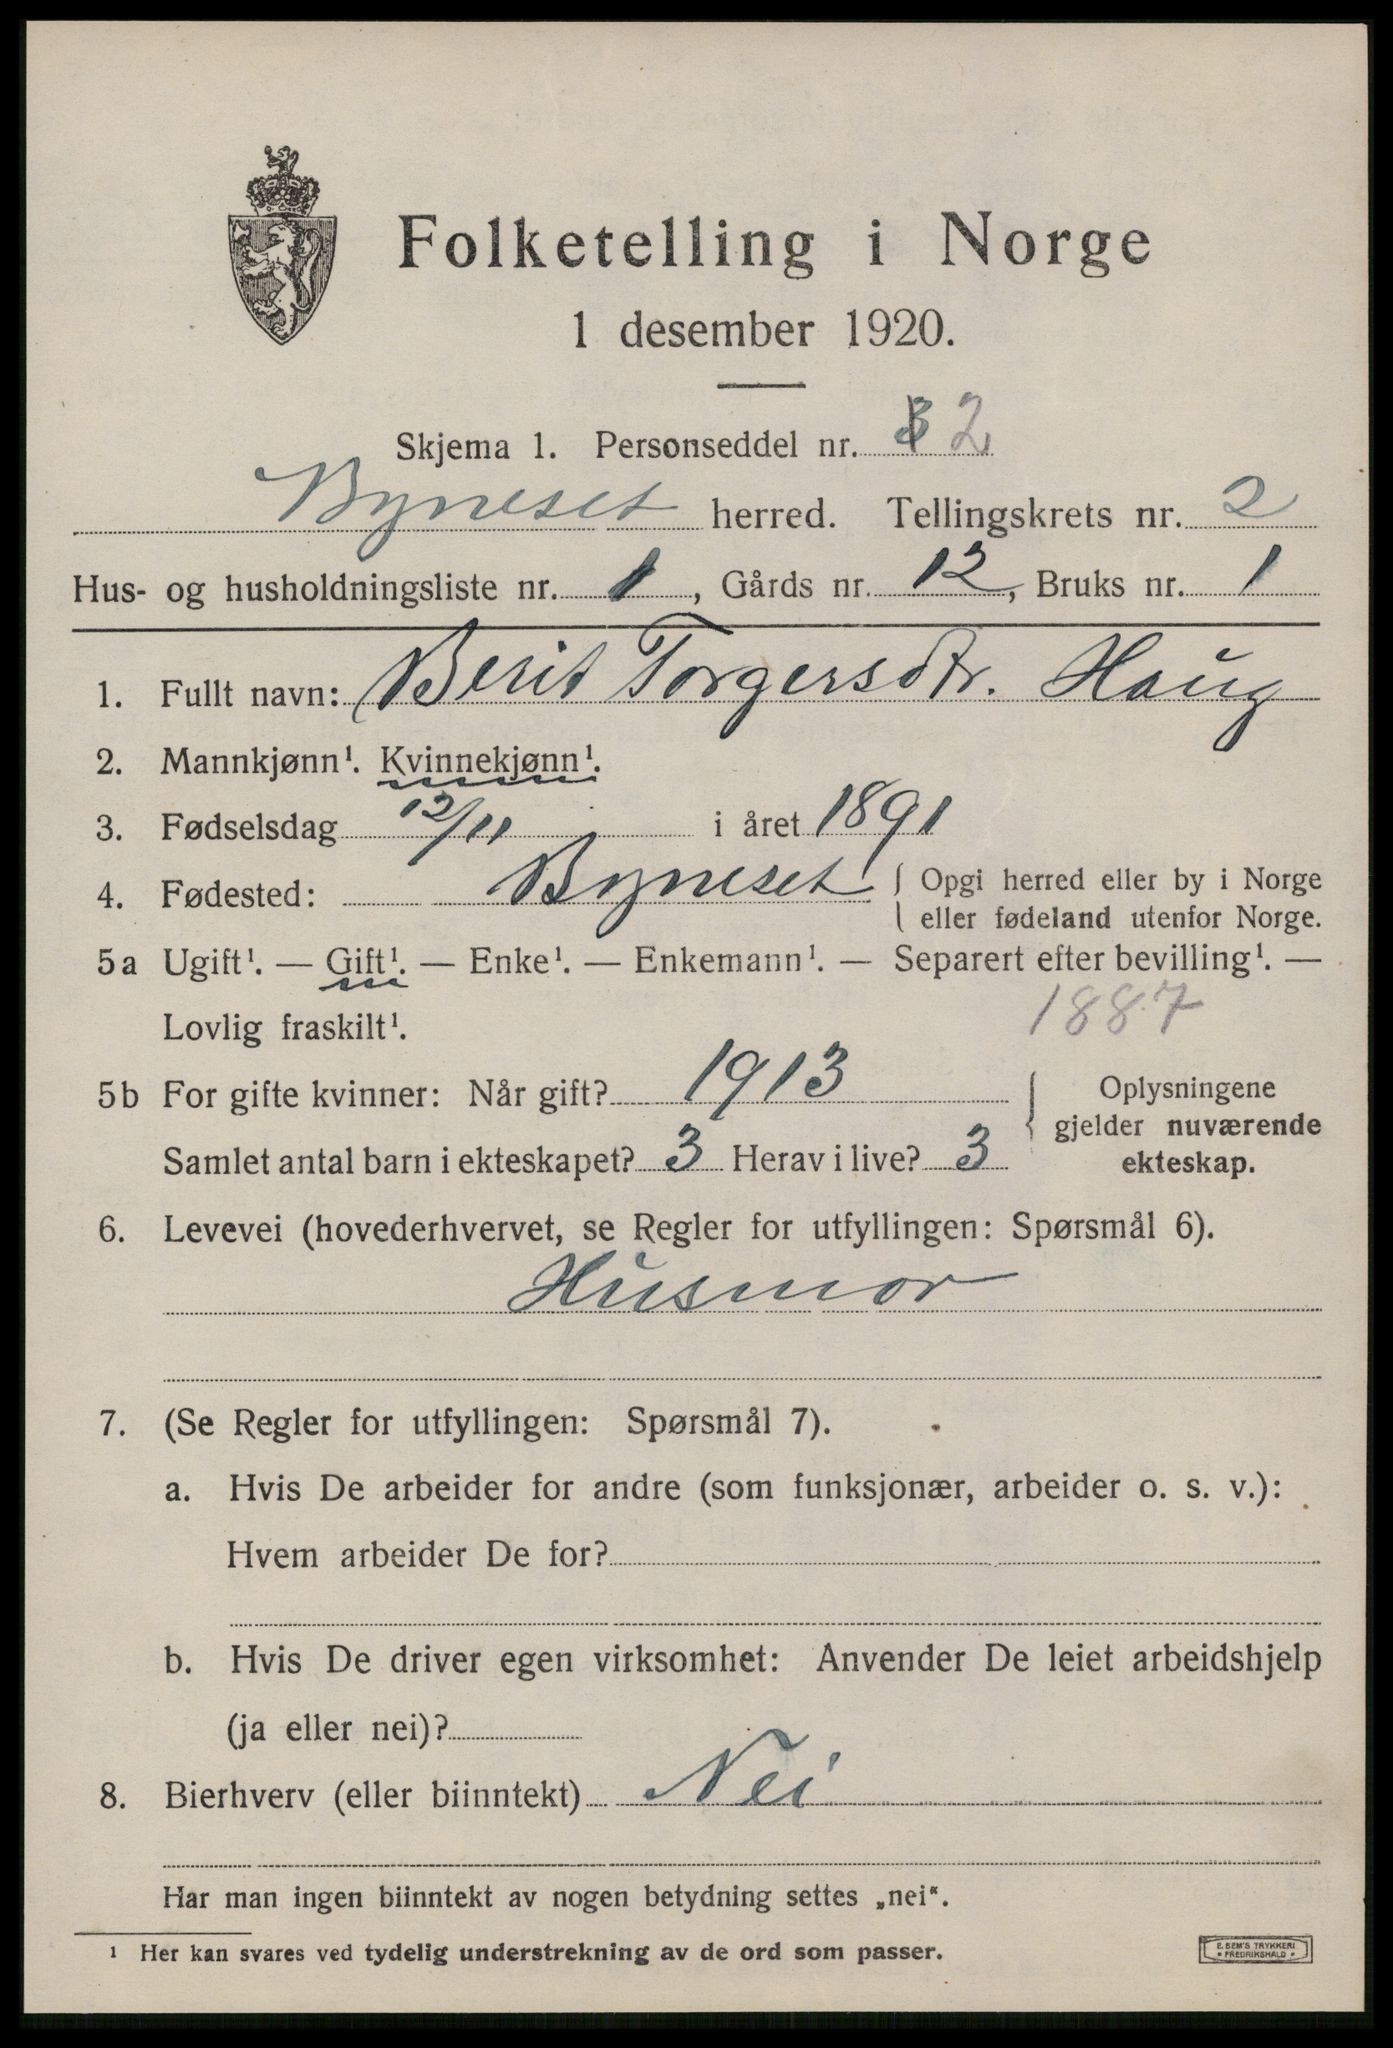 Folketelling i Norge
1 desember 1920.
Skjema 1. Personseddel nr. 3 2
Byneset herred. Tellingskrets nr. 2
Hus- og husholdningsliste nr. 1, Gårds nr. 12, Bruks nr. 1
1. Fullt navn: Berit Torgersdtr. Haug
2. Mannkjønn¹. Kvinnekjønn¹.
3. Fødselsdag 12/11 i året 1891
4. Fødested: Byneset { Opgi herred eller by i Norge
eller fødeland utenfor Norge.
5a Ugift¹. — Gift¹. — Enke¹. — Enkemann¹. — Separert efter bevilling¹. —
Lovlig fraskilt¹. 1887
5b For gifte kvinner: Når gift? 1913 { Oplysningene
gjelder nuværende
Samlet antal barn i ekteskapet? 3 Herav i live? 3 ekteskap.
6. Levevei (hovederhvervet, se Regler for utfyllingen: Spørsmål 6).
Husmor
7. (Se Regler for utfyllingen: Spørsmål 7).
a. Hvis De arbeider for andre (som funksjonær, arbeider o. s. v.):
Hvem arbeider De for?
b. Hvis De driver egen virksomhet: Anvender De leiet arbeidshjelp
(ja eller nei)?
8. Bierhverv (eller biinntekt) Nei
Har man ingen biinntekt av nogen betydning settes „nei“.
¹ Her kan svares ved tydelig understrekning av de ord som passer.
E. SEM'S TRYKKERI
• FREDRIKSHALD •